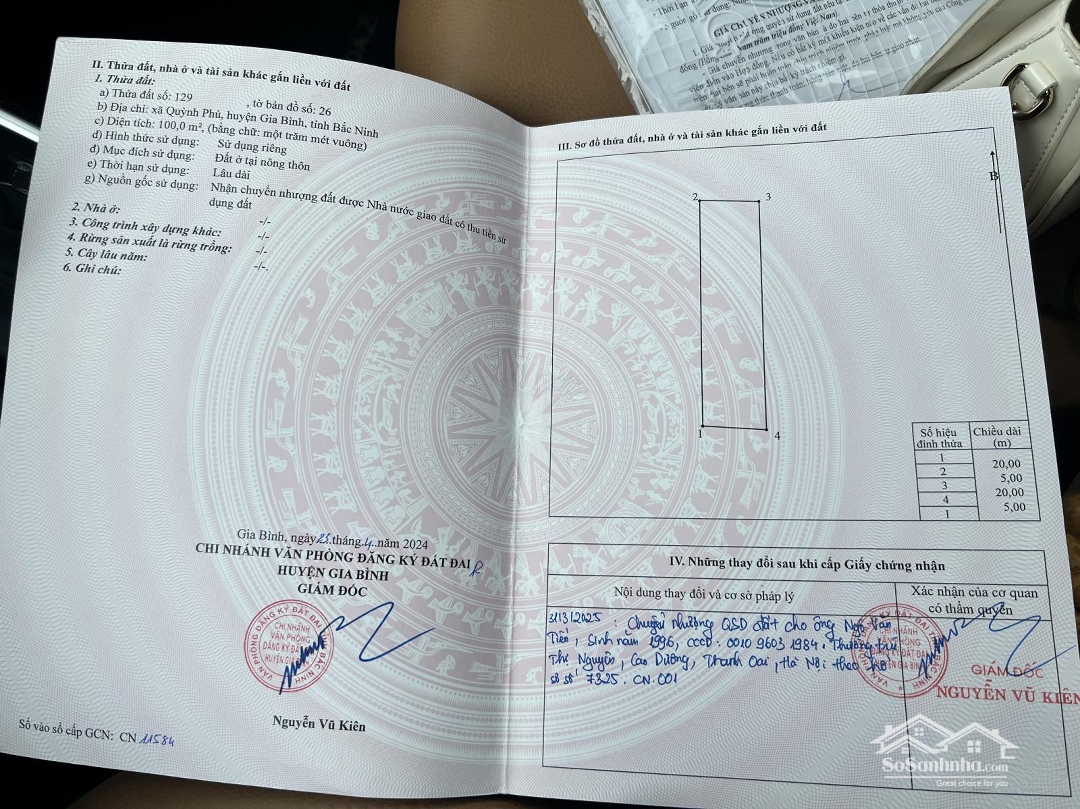 GIÁ CHUYỂN NHƯỢNG
(Năm trăm triệu đồng Việt Nam)
II. Thửa đất, nhà ở và tài sản khác gắn liền với đất
1. Thửa đất:
a) Thửa đất số: 129 , tờ bản đồ số: 26
b) Địa chỉ: xã Quỳnh Phú, huyện Gia Bình, tỉnh Bắc Ninh
c) Diện tích: 100,0 m², (bằng chữ: một trăm mét vuông)
d) Hình thức sử dụng: Sử dụng riêng
đ) Mục đích sử dụng: Đất ở tại nông thôn
e) Thời hạn sử dụng: Lâu dài
g) Nguồn gốc sử dụng: Nhận chuyển nhượng đất được Nhà nước giao đất có thu tiền sử
dụng đất
2. Nhà ở: -/-
3. Công trình xây dựng khác: -/-
4. Rừng sản xuất là rừng trồng: -/-
5. Cây lâu năm: -/-.
6. Ghi chú:
Gia Bình, ngày 25 tháng 4 năm 2024
CHI NHÁNH VĂN PHÒNG ĐĂNG KÝ ĐẤT ĐAI
HUYỆN GIA BÌNH
GIÁM ĐỐC
VĂN PHÒNG ĐĂNG KÝ ĐẤT ĐAI TỈNH BẮC NINH
CHI NHÁNH
VĂN PHÒNG
ĐĂNG KÝ ĐẤT ĐAI
HUYỆN GIA BÌNH
Nguyễn Vũ Kiên
Số vào sổ cấp GCN: CN 11584
III. Sơ đồ thửa đất, nhà ở và tài sản khác gắn liền với đất
B
2 3
1 4
Số hiệu đỉnh thửa Chiều dài (m)
1
20,00
2
5,00
3
20,00
4
5,00
1
IV. Những thay đổi sau khi cấp Giấy chứng nhận
Nội dung thay đổi và cơ sở pháp lý Xác nhận của cơ quan
có thẩm quyền
31/3/2025 : Chuyển nhượng QSD đất cho ông Ngô Văn
Tiến, Sinh năm 1996, CCCD : 0010 9603 1984. Thường trú
Thị Nguyên, Cao Dương, Thanh Oai, Hà Nội theo hồ
sơ số 7325. CN. 001
GIÁM ĐỐC
NGUYỄN VŨ KIÊN
SoSanhnha.com
Great choice for you